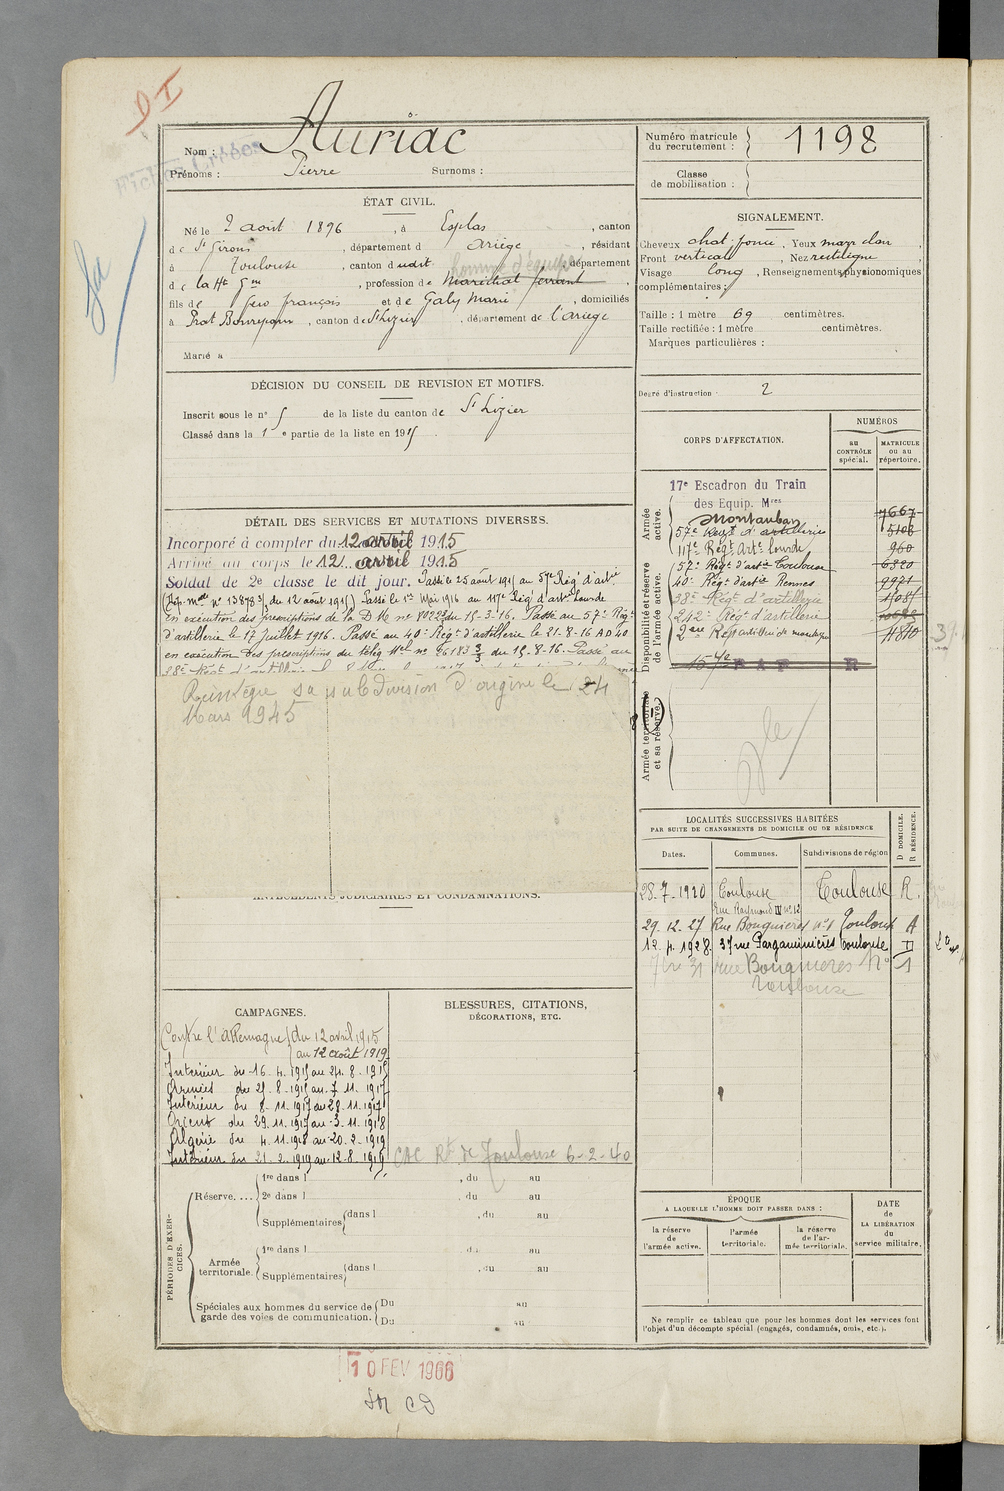 D I
Nom : Auriac
Fiches Créées
Prénoms : Pierre Surnoms :
Numéro matricule
du recrutement : 1198
Classe
de mobilisation :
ÉTAT CIVIL.
Né le 2 août 1896, à Esplas, canton
de St Girons, département d Ariège, résidant
à Toulouse, canton dudit, département
homme d'équipe
de la Hte Gne, profession de Maréchal ferrant,
fils de feu François et de Galy Marie, domiciliés
à Prat Bonrepaux, canton de St Lizier, département de l'Ariège
Marié à
SIGNALEMENT.
Cheveux chat. foncé, Yeux marr clair,
Front vertical, Nez rectiligne,
Visage long, Renseignements physionomiques
complémentaires :
Taille : 1 mètre 69 centimètres.
Taille rectifiée : 1 mètre centimètres.
Marques particulières :
Degré d'instruction : 2
DÉCISION DU CONSEIL DE REVISION ET MOTIFS.
Inscrit sous le n° 5 de la liste du canton de St Lizier
Classé dans la 1e partie de la liste en 1915.
CORPS D'AFFECTATION.
NUMÉROS
au CONTRÔLE spécial.
MATRICULE ou au répertoire.
Armée active.
17e Escadron du Train
des Equip. Mres 7667
Montauban
57e Régt d'artillerie 5106
117e Régt Arte Lourde 960
Disponibilité et réserve de l'armée active.
57e Régt d'artie Toulouse 6820
40e Régt d'artie Rennes 9971
38e Régt d'artillerie
242e Régt d'artillerie
Armée territoriale et sa réserve.
DÉTAIL DES SERVICES ET MUTATIONS DIVERSES.
Incorporé à compter du 12 avril 1915
Arrivé au corps le 12 avril 1915
Soldat de 2e classe le dit jour. Passé le 25 août 1915 au 57e Rég' d'artie
(Dép. Mle n° 13878 3/3 du 12 août 1915) Passé le 1er Mai 1916 au 117e Rég' d'arte Lourde
en exécution des prescriptions de la D M n° du 15-3-16. Passé au 57e Régt
d'artillerie le 17 Juillet 1916. Passé au 40e Régt d'artillerie le 21-8-16 AD40
en exécution des prescriptions du télég Mel n° 26183 3/3 du 15-8-16. Passé au
Réintégré sa subdivision d'origine le 24
Mars 1945
ANTÉCÉDENTS JUDICIAIRES ET CONDAMNATIONS.
LOCALITÉS SUCCESSIVES HABITÉES
PAR SUITE DE CHANGEMENTS DE DOMICILE OU DE RÉSIDENCE
Dates. Communes. Subdivisions de région D DOMICILE. R RÉSIDENCE.
28-7-1920 Toulouse Toulouse R.
Rue Raymond IV n° 12
29.12.27 Rue Bouquières n° 1 Toulouse
12.4.1928 37 rue Pargaminières Toulouse D
31 rue Bouquières N° 1
Toulouse
CAMPAGNES.
Contre l'Allemagne du 12 avril 1915
au 12 août 1919
Intérieur du 16.4.1915 au 24.8.1915
Armées du 25.8.1915 au 7.11.1917
Intérieur du 8.11.1917 au 28.11.1917
Orient du 29.11.1917 au 3.11.1918
Algérie du 4.11.1918 au 20.2.1919
Intérieur du 21.2.1919 au 12.8.1919
BLESSURES, CITATIONS,
DÉCORATIONS, ETC.
CAC Rt de Toulouse 6-2-40
PÉRIODES D'EXERCICES.
Réserve.... 1re dans l , du au
2e dans l , du au
Supplémentaires dans l , du au
Armée territoriale. 1re dans l du au
Supplémentaires dans l , du au
Spéciales aux hommes du service de
garde des voies de communication. Du au
Du au
ÉPOQUE
A LAQUELLE L'HOMME DOIT PASSER DANS :
la réserve de l'armée active.
l'armée territoriale.
la réserve de l'armée territoriale.
DATE
de
LA LIBÉRATION
du
service militaire.
Ne remplir ce tableau que pour les hommes dont les services font
l'objet d'un décompte spécial (engagés, condamnés, omis, etc.).
10 FEV 1966